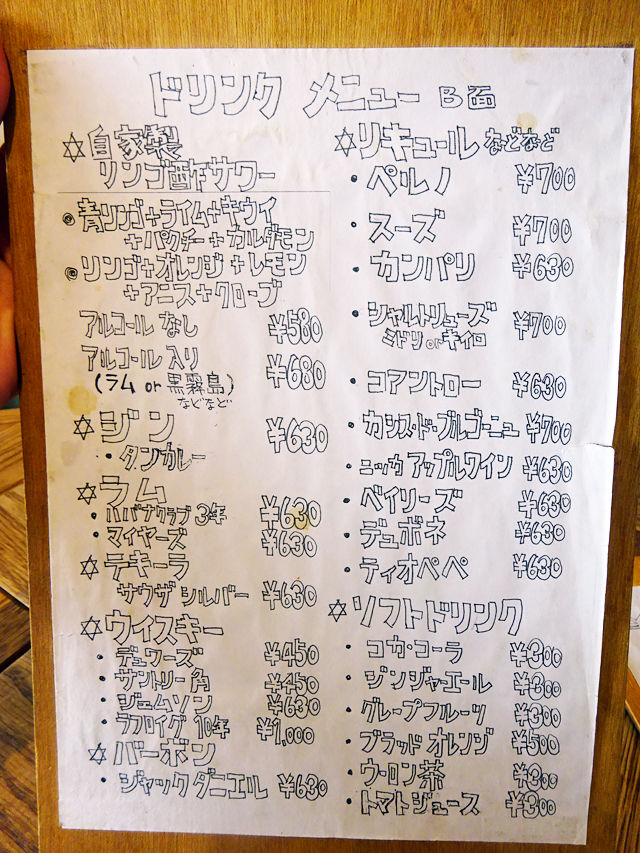 ドリンク メニュー B面
✡自家製
リンゴ酢サワー
◉青リンゴ+ライム+キウイ
+パクチー+カルダモン
◉リンゴ+オレンジ+レモン
+アニス+クローブ
アルコール なし ¥580
アルコール 入り ¥680
(ラム or 黒霧島)
などなど
✡ジン ¥630
・タンカレー
✡ラム
・ハバナクラブ 3年 ¥630
・マイヤーズ ¥630
✡テキーラ
サウザ シルバー ¥630
✡ウイスキー
・デュワーズ ¥450
・サントリー 角 ¥450
・ジェムソン ¥630
・ラフロイグ 10年 ¥1,000
✡バーボン
・ジャック ダニエル ¥630
✡リキュール などなど
・ペルノ ¥700
・スーズ ¥700
・カンパリ ¥630
・シャルトリューズ ¥700
ミドリ or キイロ
・コアントロー ¥630
・カシス・ド・ブルゴーニュ ¥700
・ニッカ アップルワイン ¥630
・ベイリーズ ¥630
・デュボネ ¥630
・ティオペペ ¥630
✡ソフトドリンク
・コカ・コーラ ¥300
・ジンジャーエール ¥300
・グレープフルーツ ¥300
・ブラッド オレンジ ¥500
・ウーロン茶 ¥300
・トマトジュース ¥300